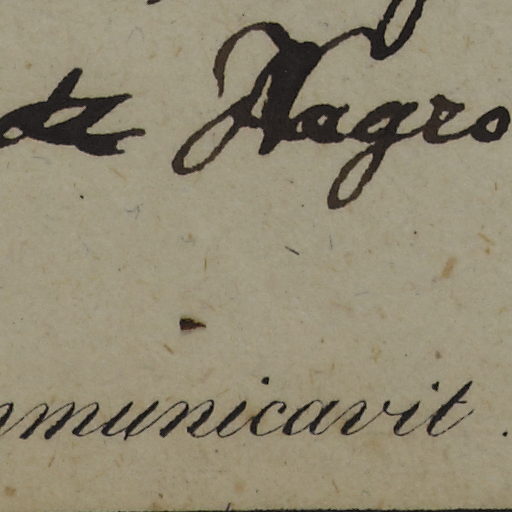 de Nagro
mmunicavit.